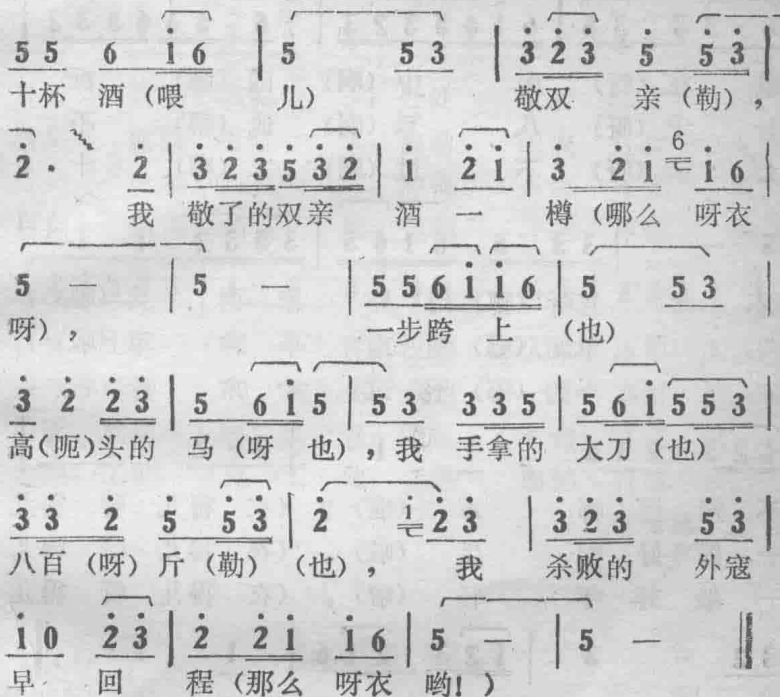 5 5 6 i 6 | 5 5 3 | 3 2 3 5 5 3
十杯 酒（喂 儿） 敬双 亲（勒），
2· 2 | 3 2 3 5 3 2 | i 2 i | 3 2 i 6 i 6
我 敬了的双亲 酒 一 樽（哪么 呀衣
5 — | 5 — | 5 5 6 i i 6 | 5 5 3
呀）， 一步跨 上 （也）
3 2 2 3 | 5 6 i 5 | 5 3 3 3 5 | 5 6 i 5 5 3
高（呃）头的 马（呀 也），我 手拿的 大刀（也）
3 3 2 5 5 3 | 2 i 2 3 | 3 2 3 5 3
八百（呀）斤（勒）（也）， 我 杀败的 外寇
i 0 2 3 | 2 2 i i 6 | 5 — | 5 —
早 回 程（那么 呀衣 哟！）